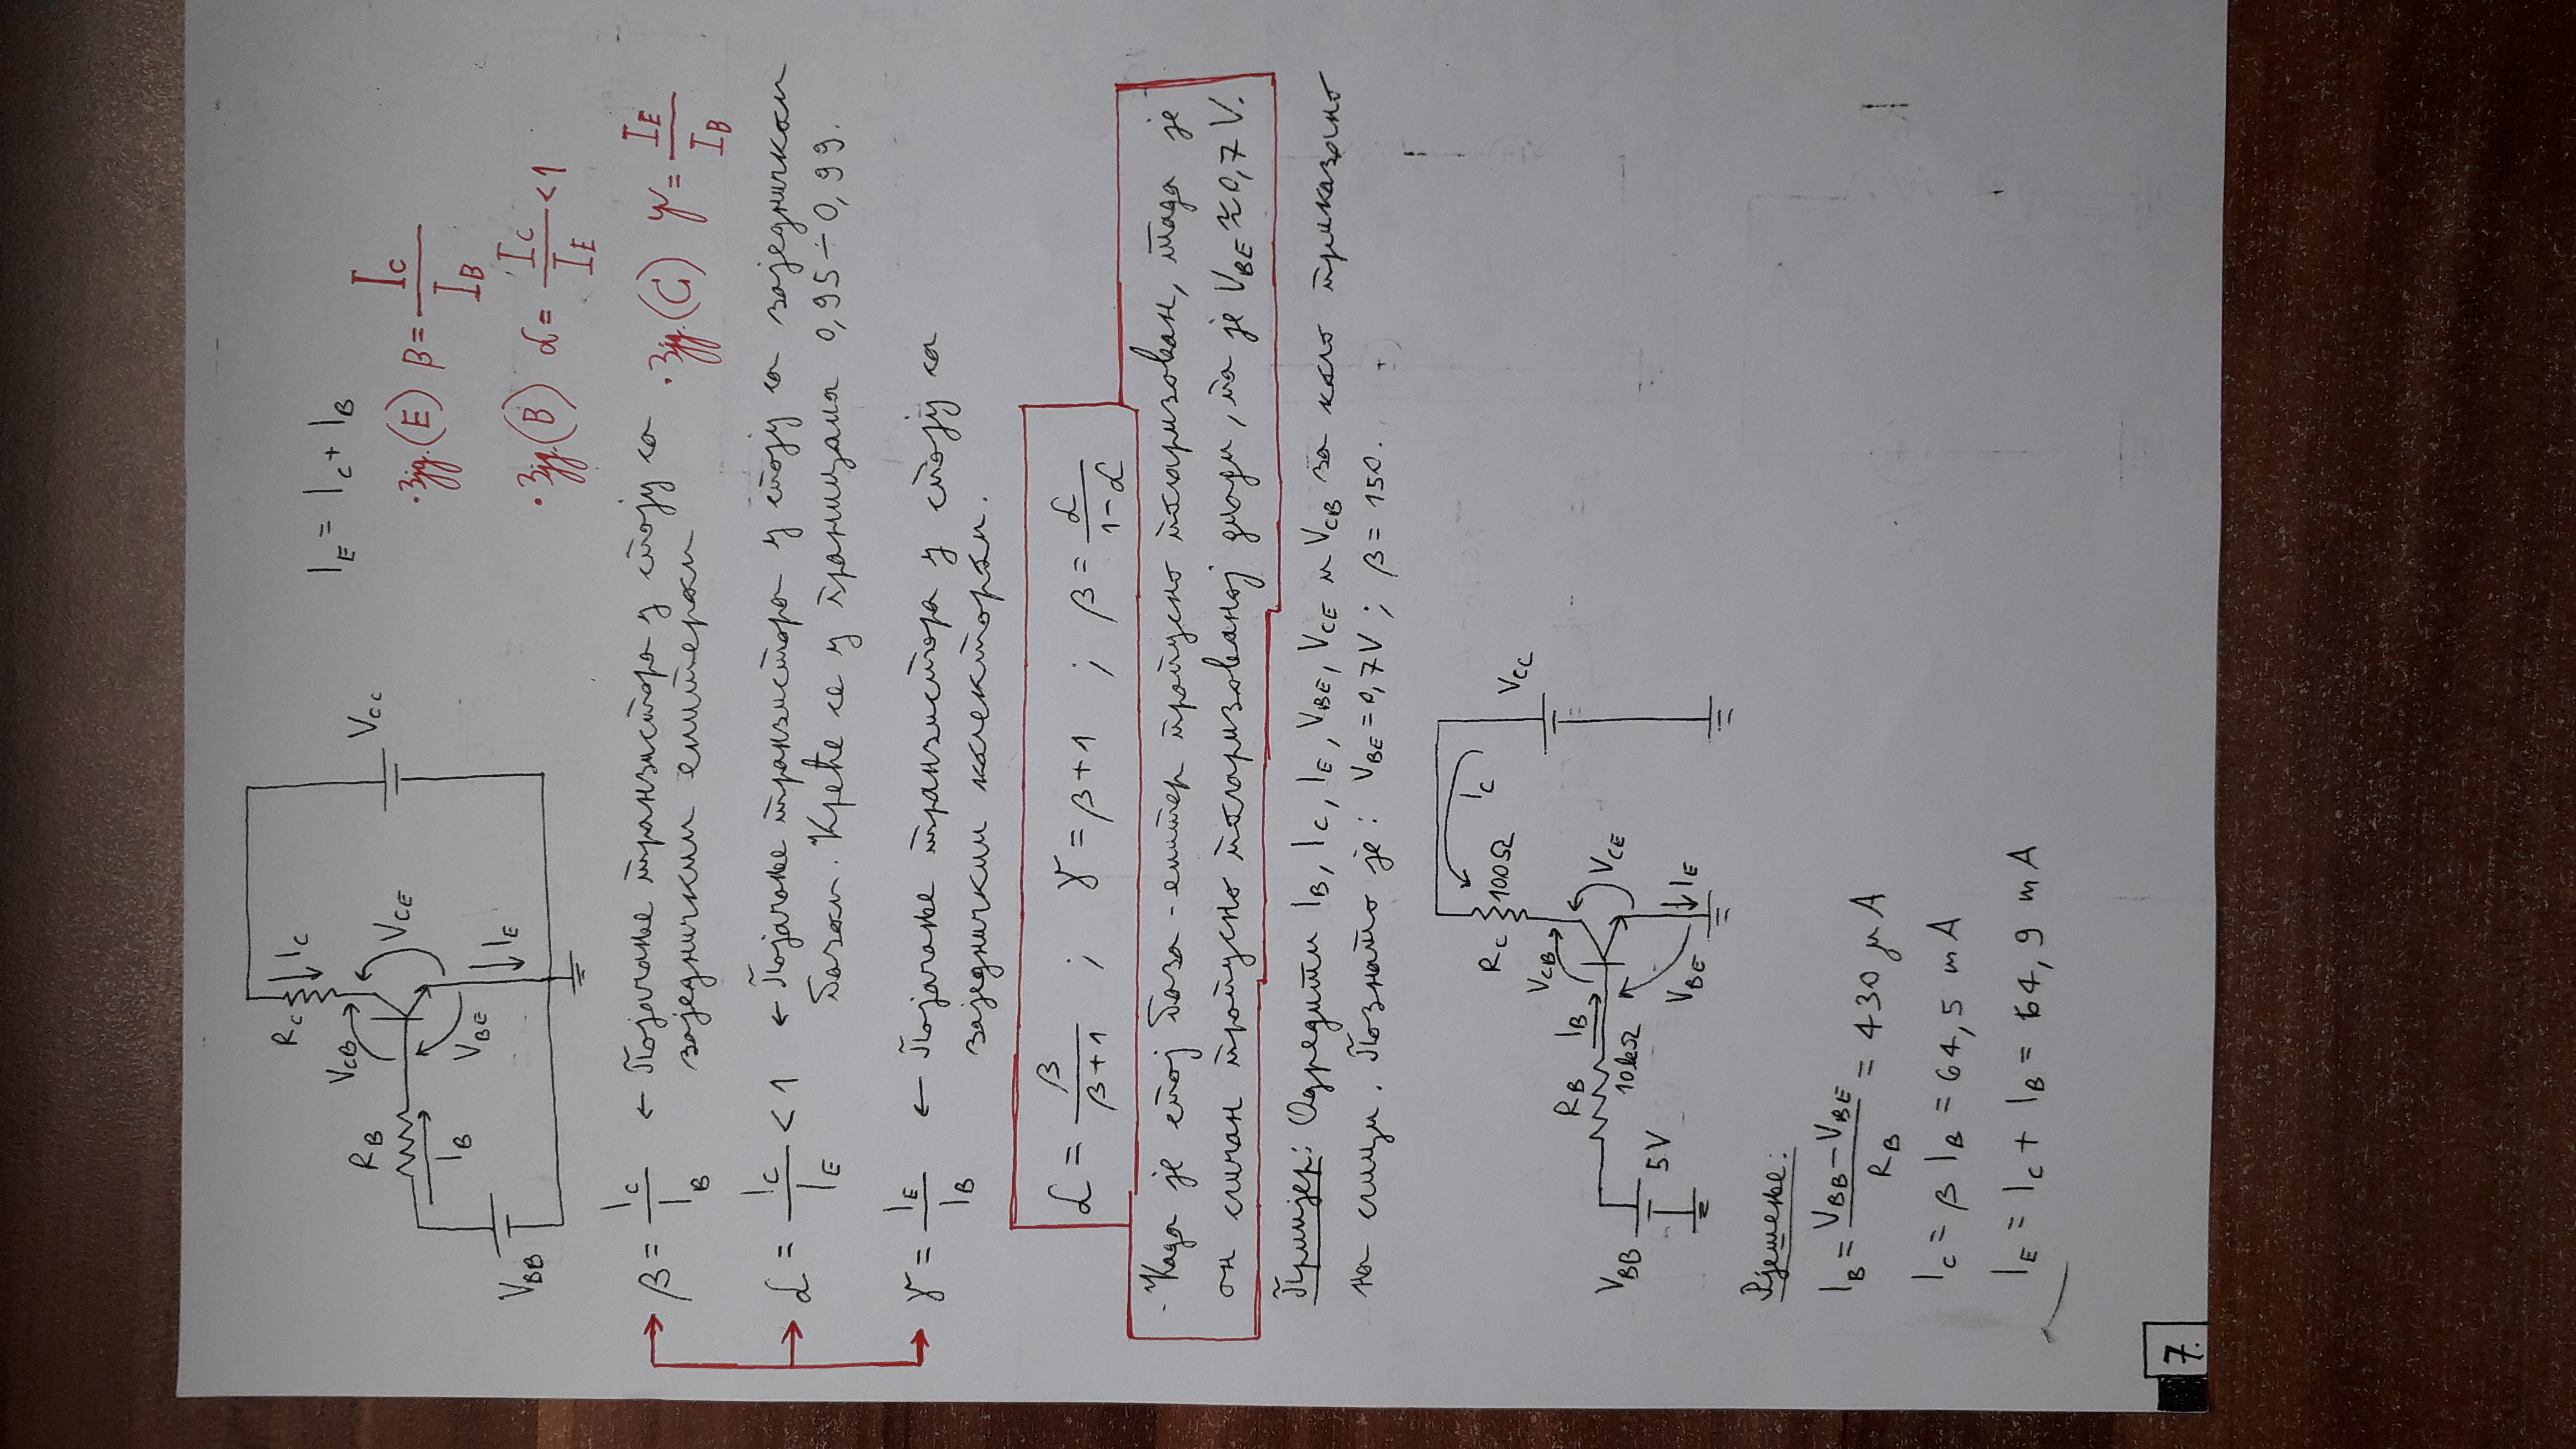 R_C
I_C
V_CB
R_B
V_CE
V_CC
I_B
V_BE
I_E
V_BB
I_E = I_C + I_B
· Зјд. (E) β = I_C / I_B
· Зјд. (B) α = I_C / I_E < 1
· Зјд. (C) γ = I_E / I_B
β = I_C / I_B ← Појачање транзистора у споју са
заједничким емитером
α = I_C / I_E < 1 ← Појачање транзистора у споју са заједничком
базом. Креће се у границама 0,95 ÷ 0,99.
γ = I_E / I_B ← Појачање транзистора у споју са
заједничким колектором.
α = β / (β + 1) ; γ = β + 1 ; β = α / (1 - α)
- Када је спој база - емитер пропусно поларизован, тада је
он сличан пропусно поларизованој диоди, па је V_BE ≈ 0,7 V.
Примјер: Одредити I_B, I_C, I_E, V_BE, V_CE и V_CB за коло приказано
на слици. Познато је: V_BE = 0,7V ; β = 150.
R_C 100Ω
I_C
V_CC
V_CB
R_B I_B
V_CE
V_BB
10kΩ
5V
V_BE
I_E
Рјешење:
I_B = (V_BB - V_BE) / R_B = 430 μA
I_C = β I_B = 64,5 mA
I_E = I_C + I_B = 64,9 mA
7.